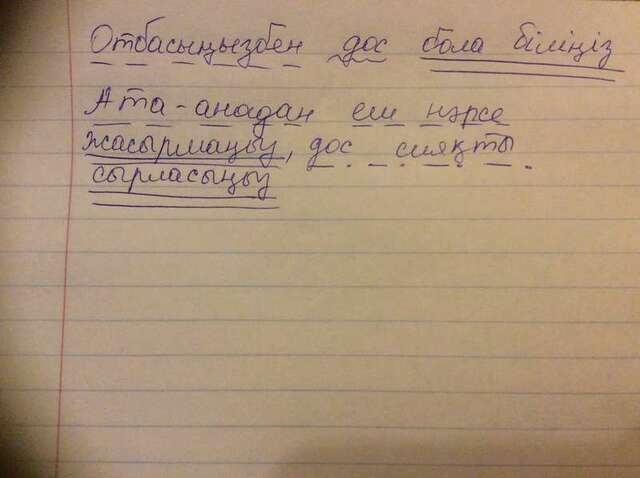 Отбасыңызбен дос бола біліңіз
Ата-анадан еш нәрсе
жасырмаңыз, дос сияқты
сырласыңыз